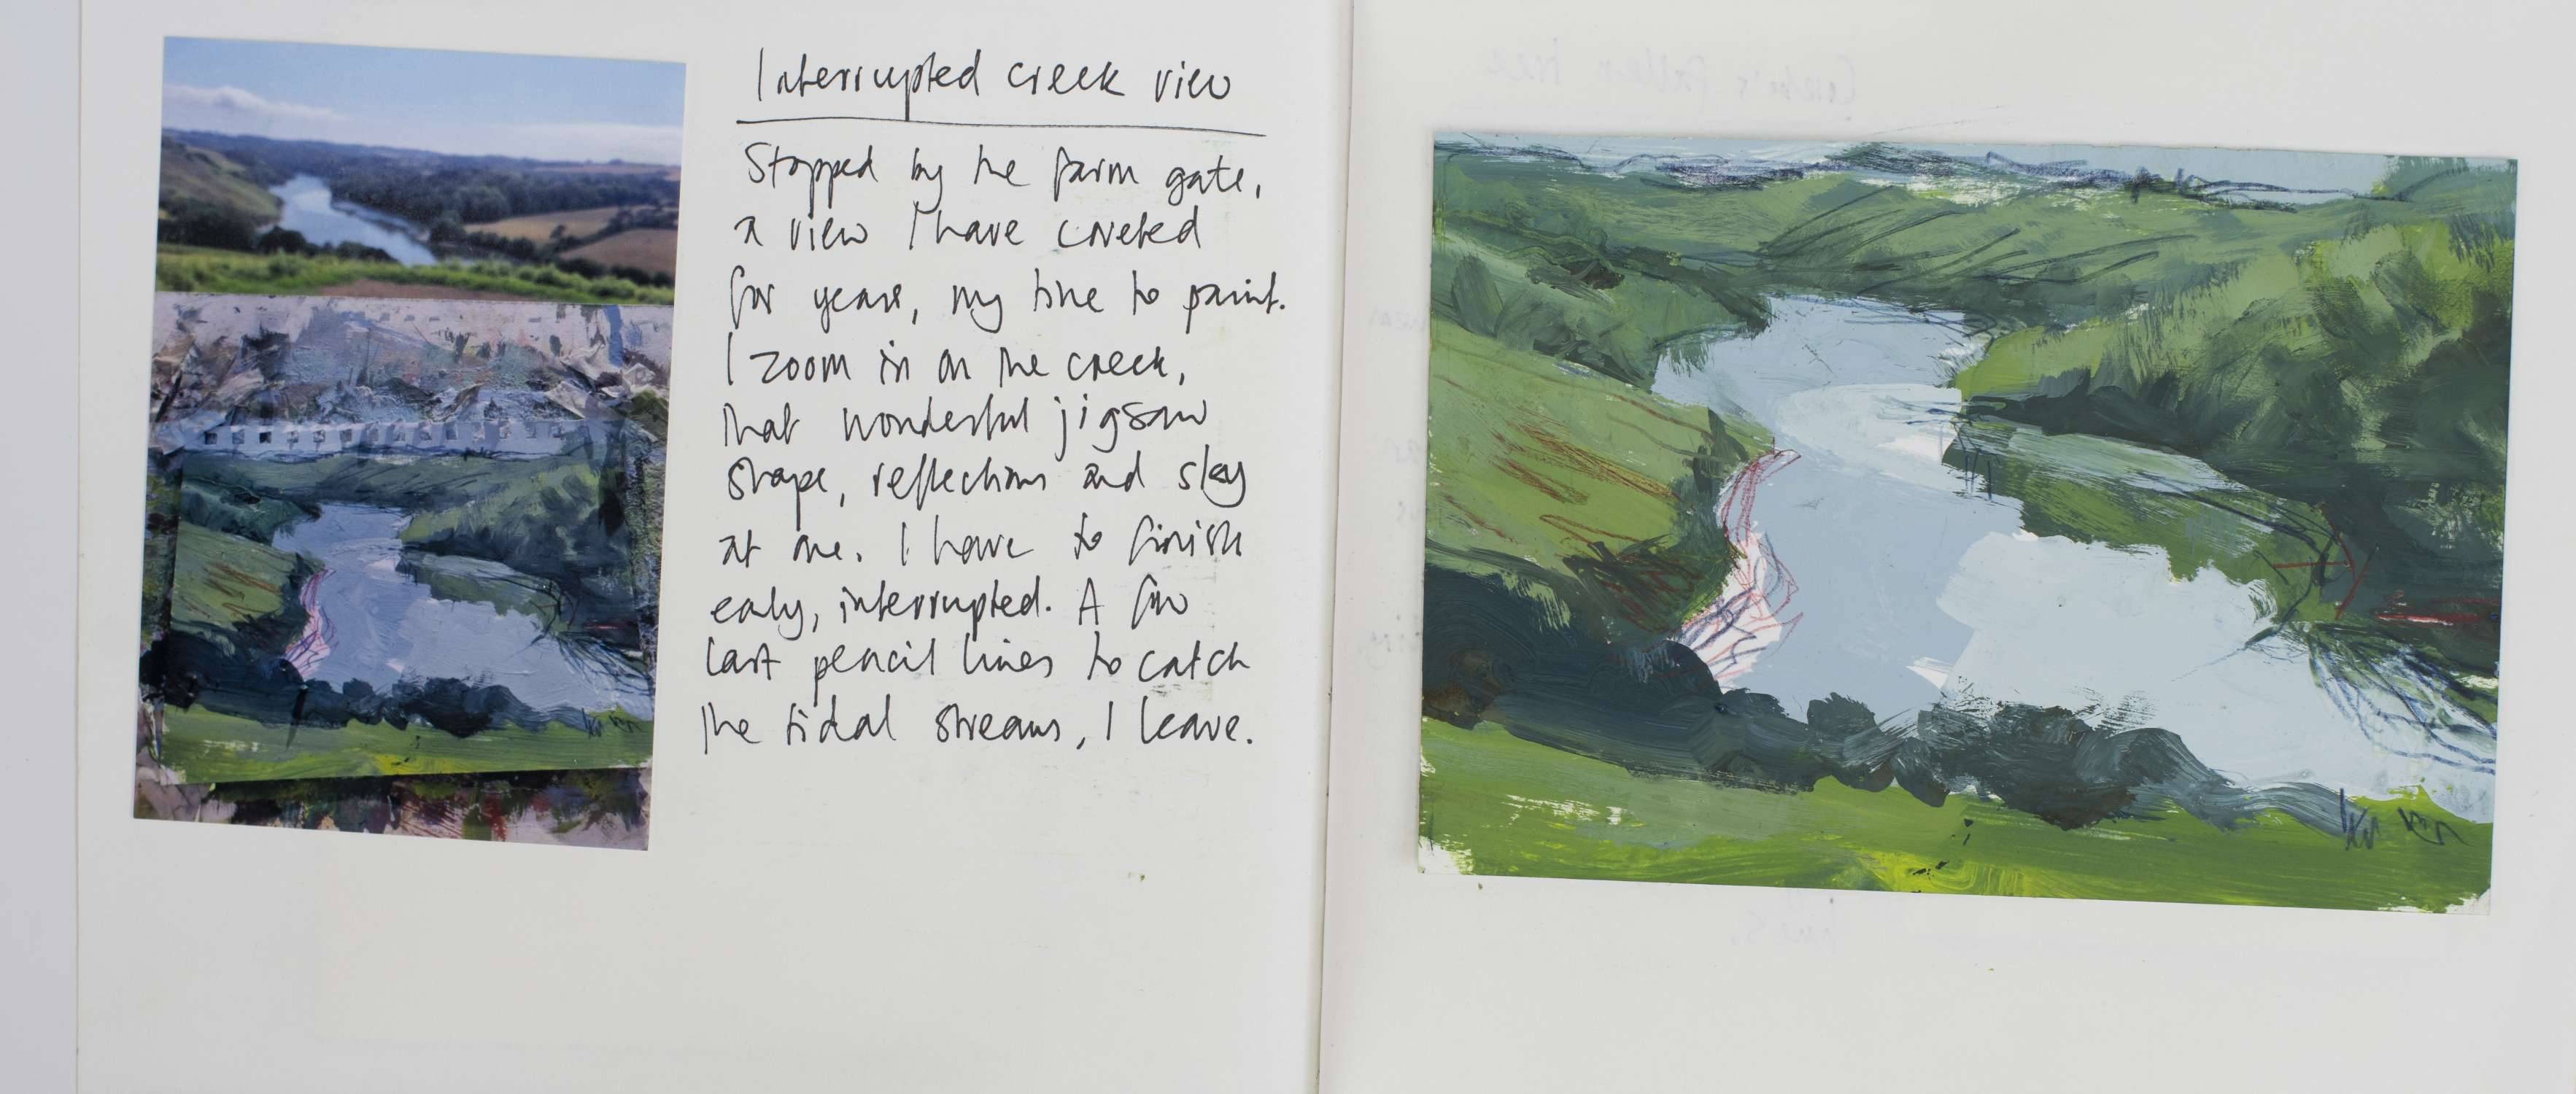 Interrupted creek view
Stopped by the farm gate,
a view I have coveted
for years, my time to paint.
I zoom in on the creek,
that wonderful jigsaw
shape, reflections and sky
at one. I have to finish
early, interrupted. A few
last pencil lines to catch
the tidal streams, I leave.